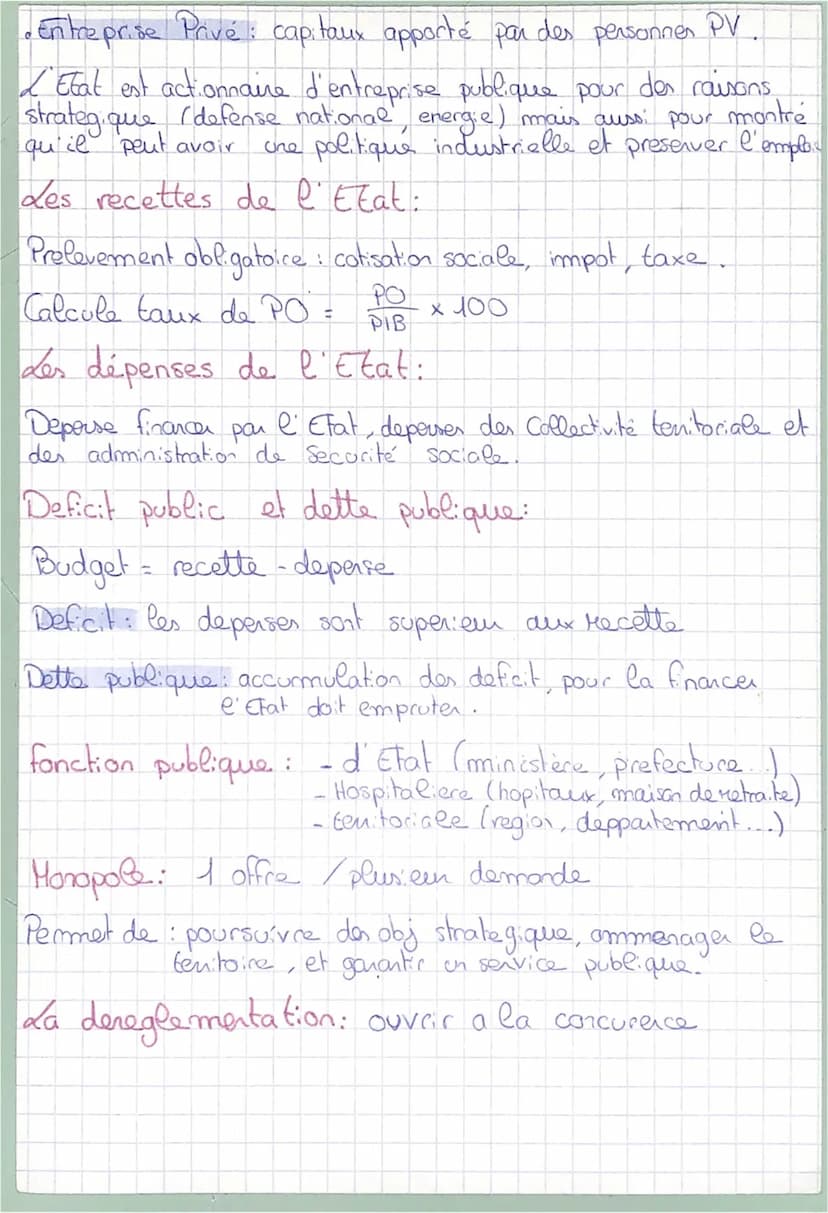 . Entreprise Privé : capitaux apporté par des personnes PV.
L'Etat est actionnaire d'entreprise publique pour des raisons
strategique (defense national, energie) mais aussi pour montré
qu'il peut avoir une politique industrielle et preserver l'emploi
Les recettes de l'Etat :
Prelevement obligatoire : cotisation sociale, impot, taxe.
Calcule taux de PO = PO / PIB x 100
Les dépenses de l'Etat :
Depense financer par l'Etat, depenses des Collectivité territoriale et
des administration de securité sociale.
Deficit public et dette publique :
Budget = recette - depense
Deficit : les depenses sont superieur aux recette
Dette publique : accummulation des deficit, pour la financer
l'Etat doit empruter.
fonction publique : - d'Etat (ministère, prefecture...)
- Hospitaliere (hopitaux, maison de retraite)
- territoriale (region, deppartement...)
Monopole : 1 offre / plusieur demande
Permet de : poursuivre des obj strategique, ammenager le
territoire, et garantir un service publique.
La dereglementation : ouvrir a la concurence